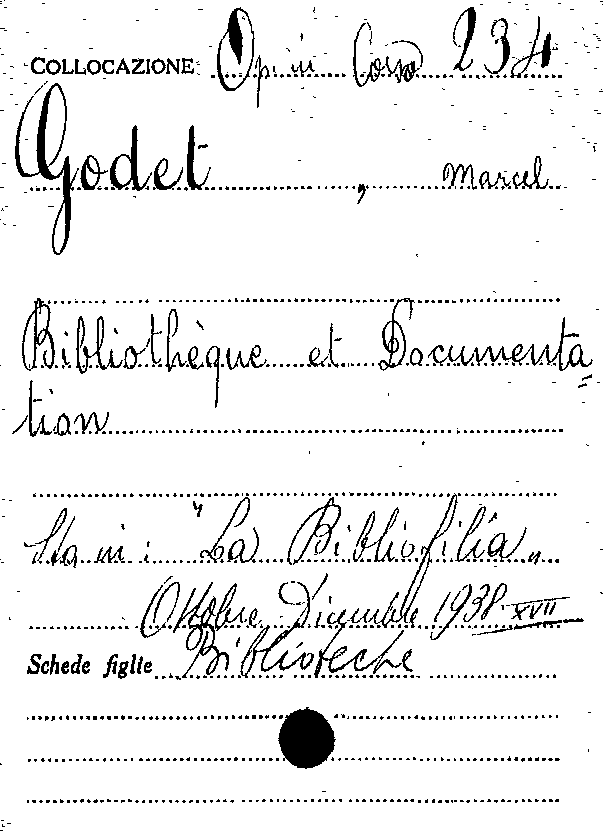 COLLOCAZIONE Op. in Corso 234
Godet, Marcel
Bibliothèque et Documenta=
tion
Sta in: "La Bibliofilia"
Ottobre Dicembre 1938 XVII
Schede figlie Biblioteche